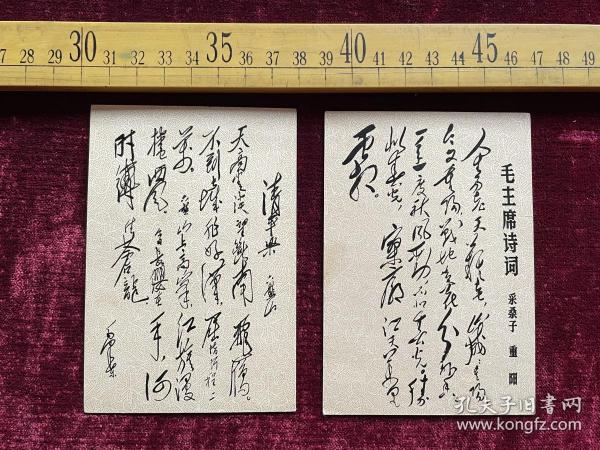 27 28 29 30 31 32 33 34 35 36 37 38 39 40 41 42 43 44 45 46 47 48 49
清平樂 六盘山
天高雲淡 望斷南飛雁。
不到長城非好漢 屈指行程二
萬。六盘山上高峰 紅旗漫
捲西風。今日長纓在手 何
时縛住蒼龍
毛泽东
毛主席诗词
采桑子 重阳
人生易老天難老,歲歲重陽
今又重陽,戰地黃花分外香。
一年一度秋風勁,不似春光。勝
似春光,寥廓江天萬里
霜。
孔夫子旧书网
www.kongfz.com